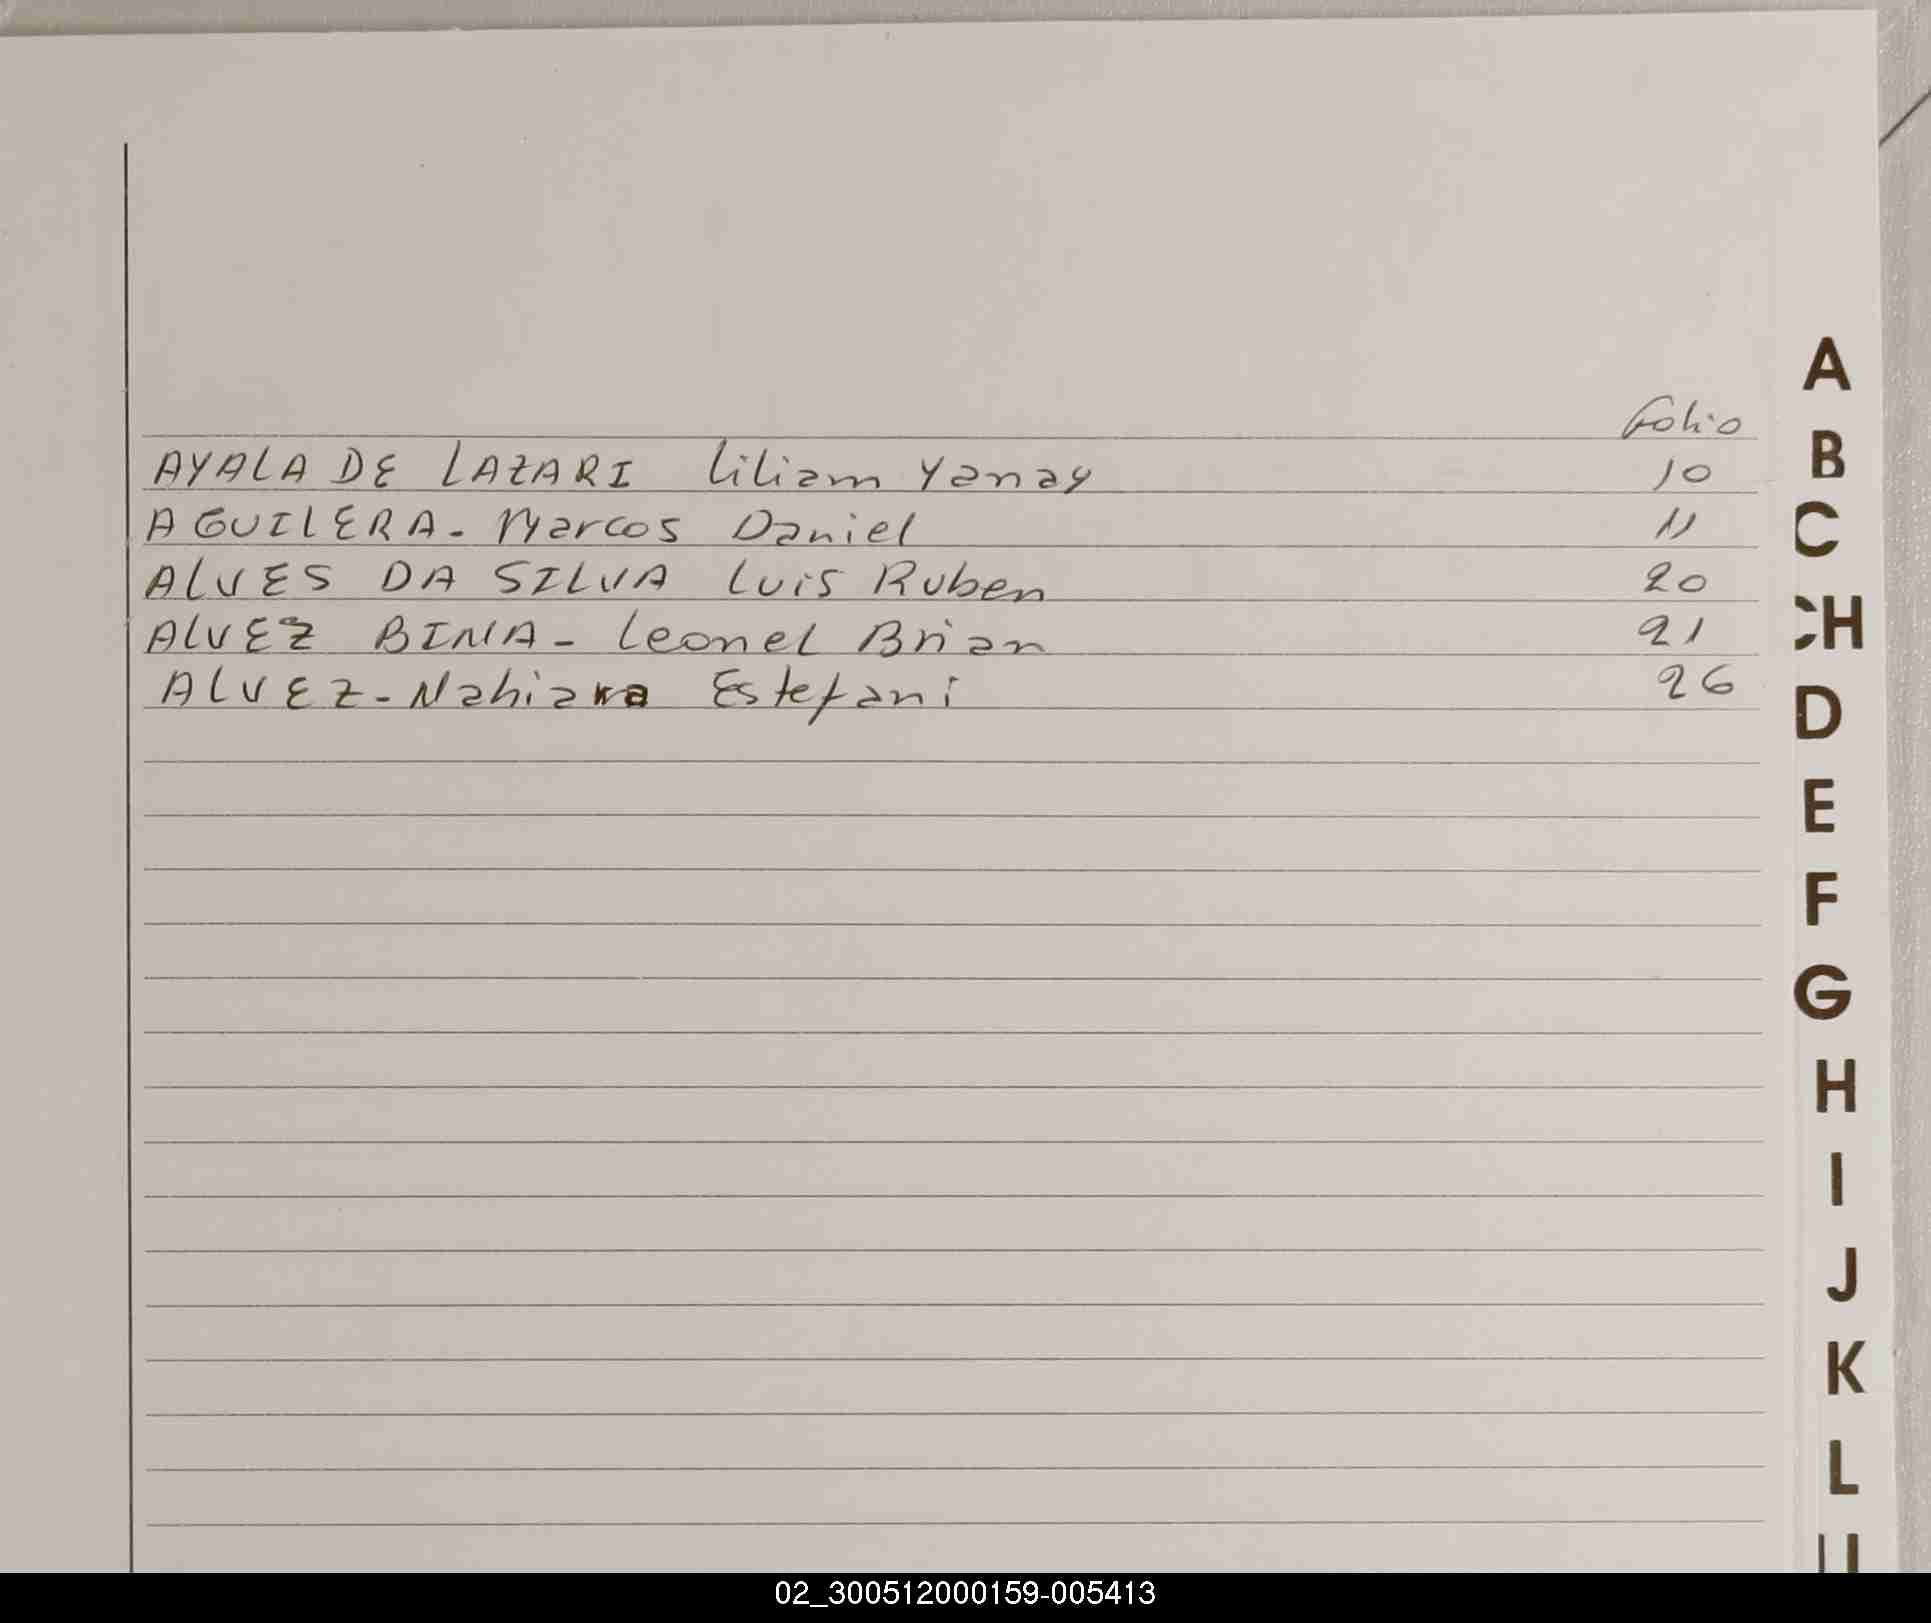 Folio
AYALA DE LAZARI Liliam Yanay 10
AGUILERA - Marcos Daniel 11
ALVES DA SILVA Luis Ruben 20
ALVEZ BINA - Leonel Brian 21
ALVEZ - Nahiara Estefani 26
A
B
C
CH
D
E
F
G
H
I
J
K
L
02_300512000159-005413